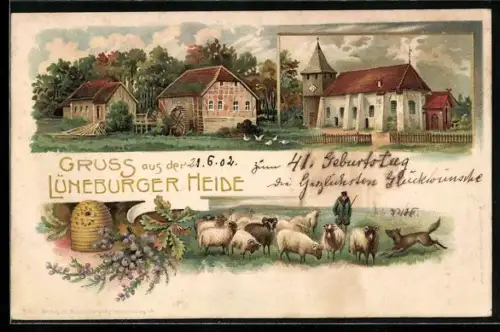 GRUSS aus der 21.6.02. zum 41. Geburtstag
LÜNEBURGER HEIDE die Herzlichsten Glückwünsche